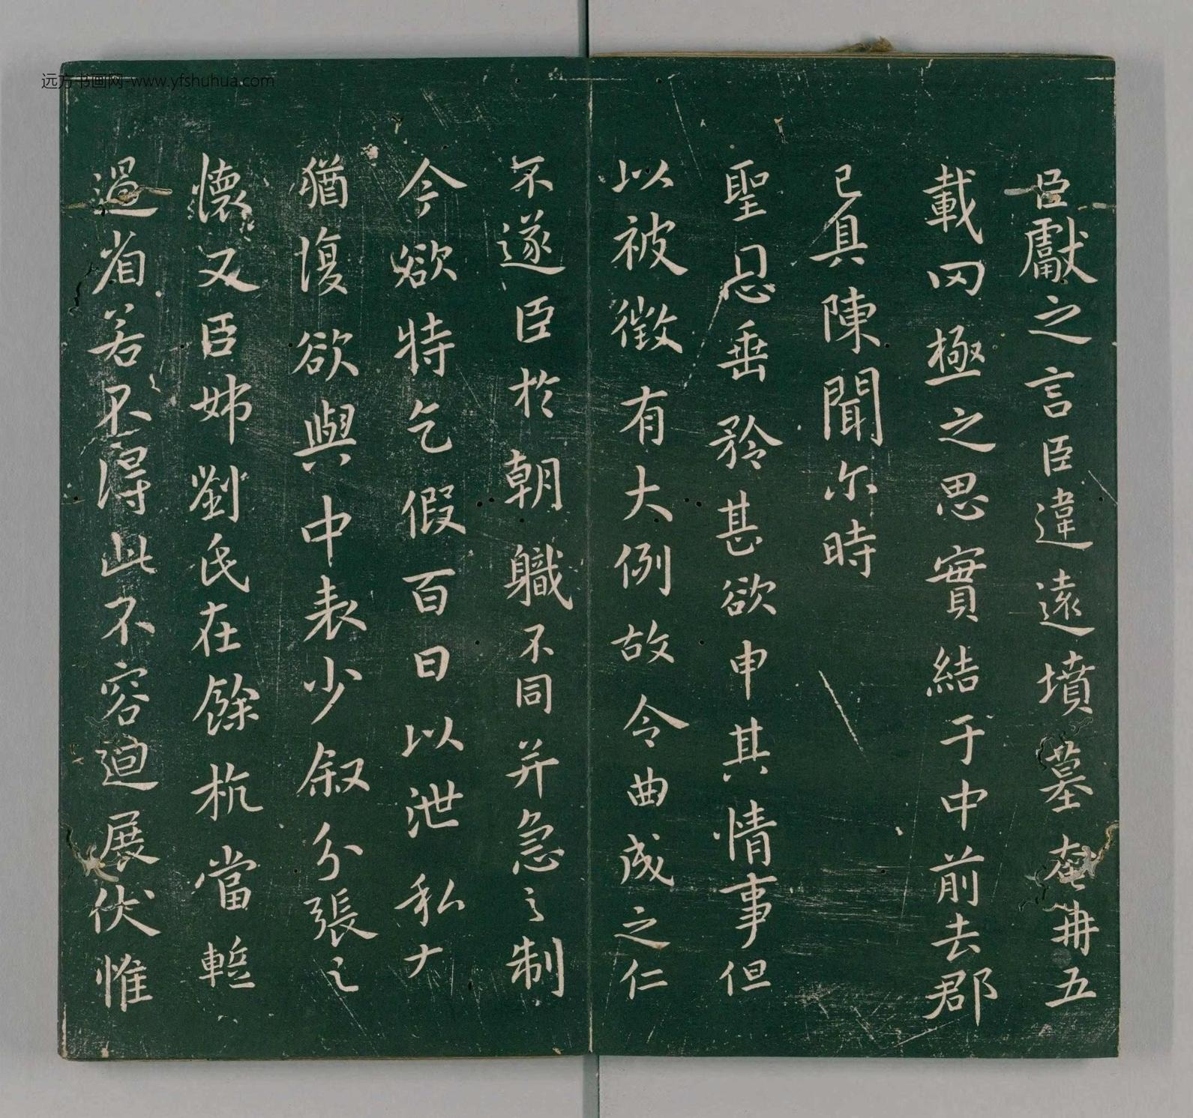 臣獻之言臣違遠墳墓奄冉五
載罔極之思實結于中前去郡
已具陳聞尒時
聖恩垂矜甚欲申其情事但
以被徵有大例故令曲成之仁
不遂臣於朝職不同并急之制
今欲特乞假百日以泄私
猶復欲與中表少叙分張之
懷又臣姊劉氏在餘杭當蹔
過省若不得此不容迴展伏惟
远方书画网 www.yfshuhua.com